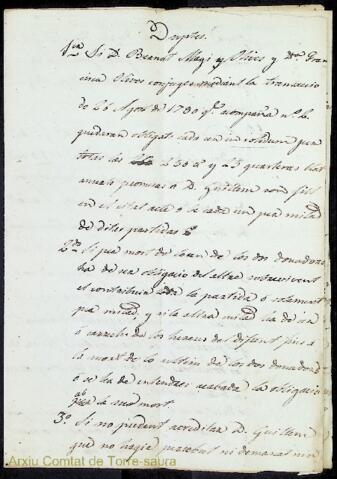 Duptes.
1ª Si D. Bernat Magi y Olives y Dª Fran
cisca Olives conjuges mediant la transaccio
de 26 Agost de 1780 qe. acompaña nº 1.
quedaren obligats cada un in solidum per
totas las 30 y 23 quarteras blat
annuals promesas a D. Guillem son fill
en el citat acte ó si cada un per mitad
de ditas partidas
2ª Si per mort de lo un de los dos donadors
ha de ser obligacio del altre sobrevivent
el contribuir la partida ó solament
per mitad, y si la altra mitad ha de ser
á carrech de los hereus del difunt fins a
la mort de lo ultim de los dos donadors
ó se ha de entendrer acabada la obligacio
ab la sua mort.
3º Si no pudent acreditar D. Guillem
que no hagia percebut ni demanat
Arxiu Comtat de Torre-saura